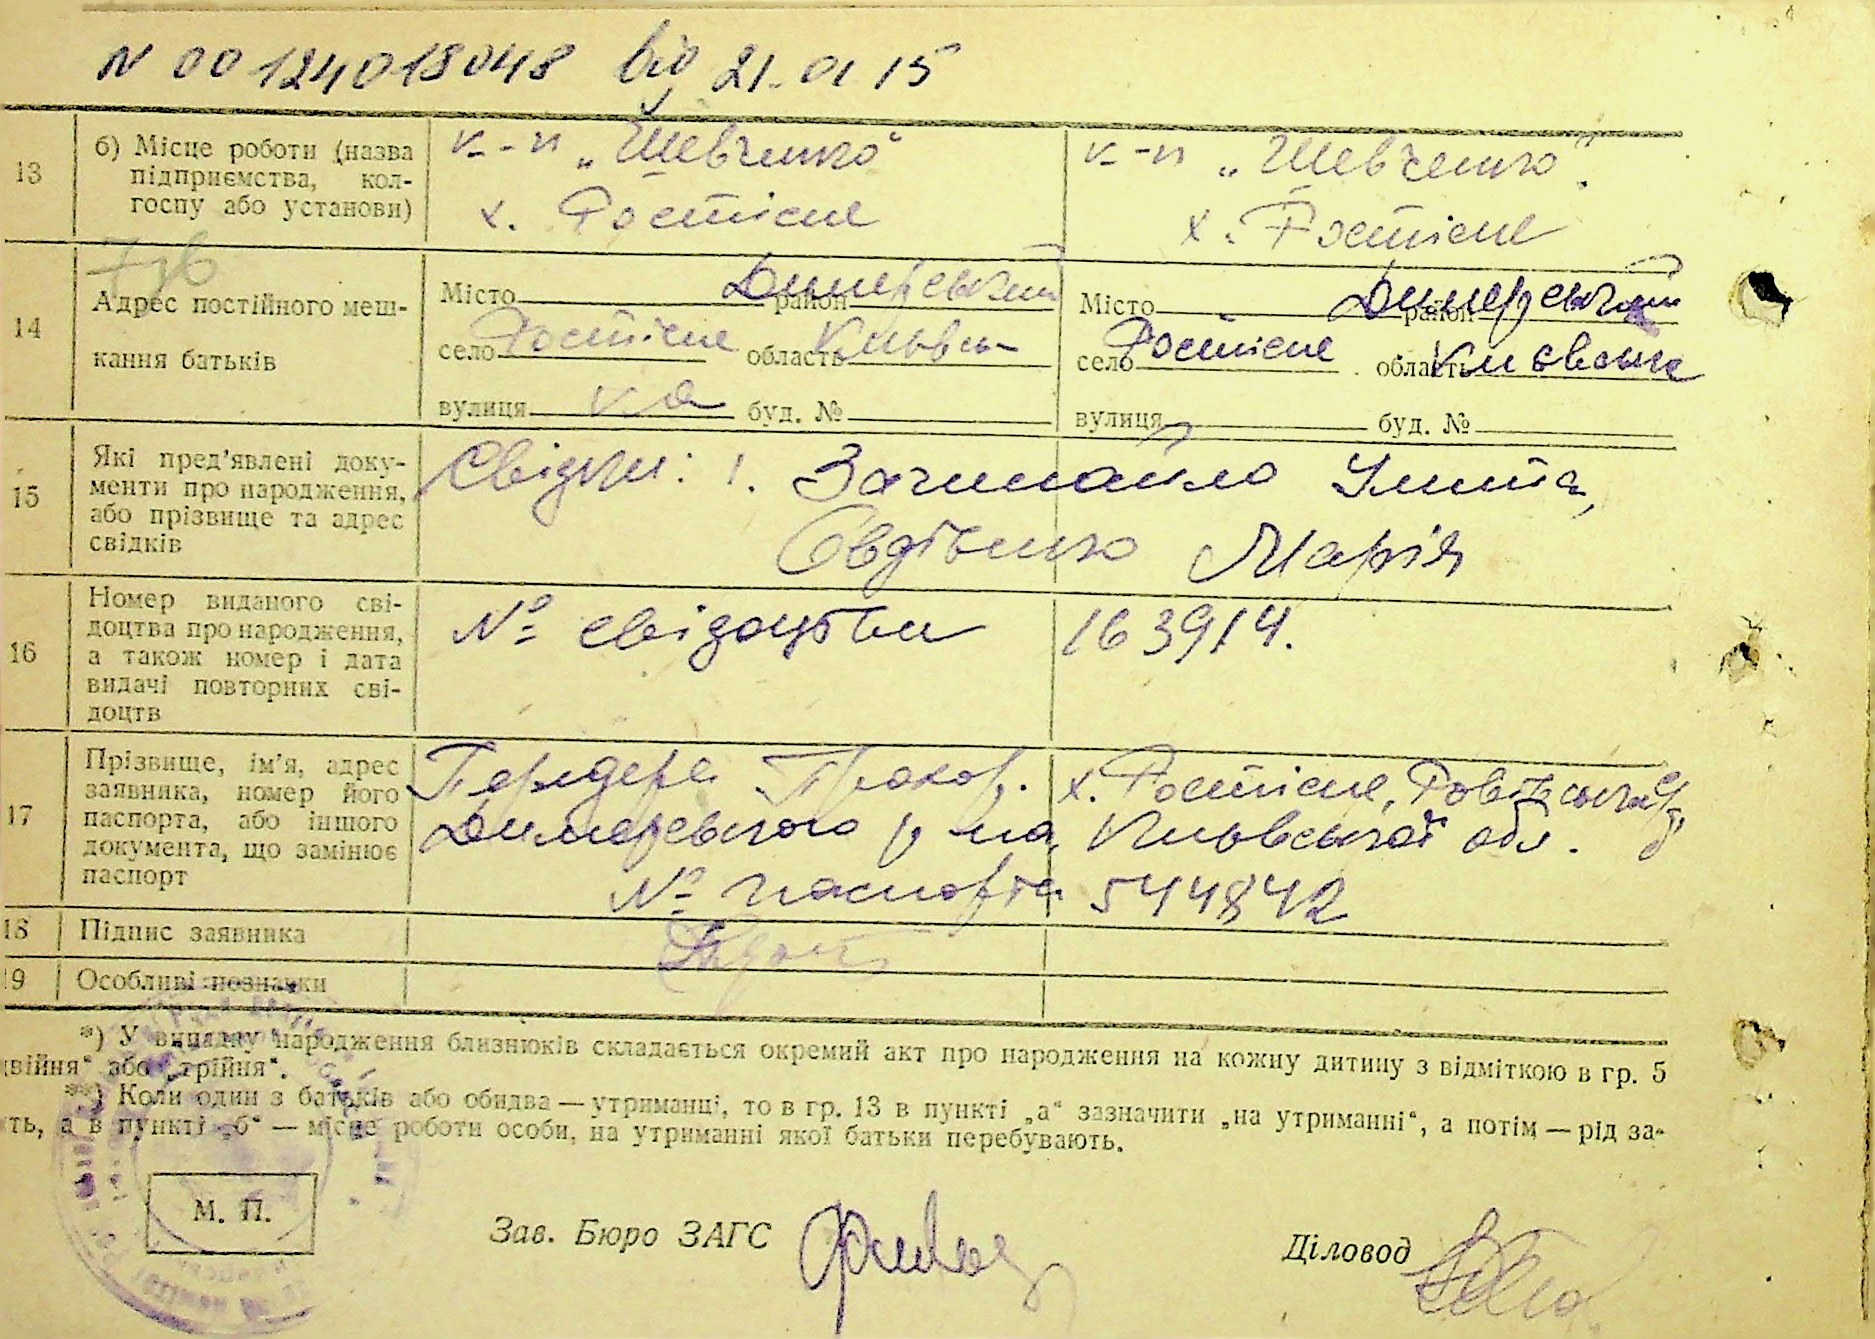 N 00124018048 від 21.01 15
13 б) Місце роботи (назва підприємства, кол-
госпу або установи)
к-п „Шевченко“
х. Ростісне
к-п „Шевченко“.
х. Ростісне
14 Адрес постійного меш-
кання батьків
Місто район Димерський
село Ростісне область Київсь-
вулиця ка буд. №
Місто район Димерський
село Ростісне область Київська
вулиця буд. №
15 Які пред’явлені доку-
менти про народження,
або прізвище та адрес
свідків
Свідки: 1. Зачинайло Улита,
Овдієнко Марія
16 Номер виданого сві-
доцтва про народження,
а також номер і дата
видачі повторних сві-
доцтв
№ свідоцтва 163914.
17 Прізвище, ім’я, адрес
заявника, номер його
паспорта, або іншого
документа, що замінює
паспорт
Прохор. х. Ростісне,
Димерського р-на, Київської обл.
№ паспорта 544842
18 Підпис заявника
19 Особливі познаки
*) У випадку народження близнюків складається окремий акт про народження на кожну дитину з відміткою в гр. 5
двійня“ або „трійня“.
**) Коли один з батьків або обидва — утриманці, то в гр. 13 в пункті „а“ зазначити „на утриманні“, а потім — рід за-
ть, а в пункті „б“ — місце роботи особи, на утриманні якої батьки перебувають.
М. П.
Зав. Бюро ЗАГС
Діловод